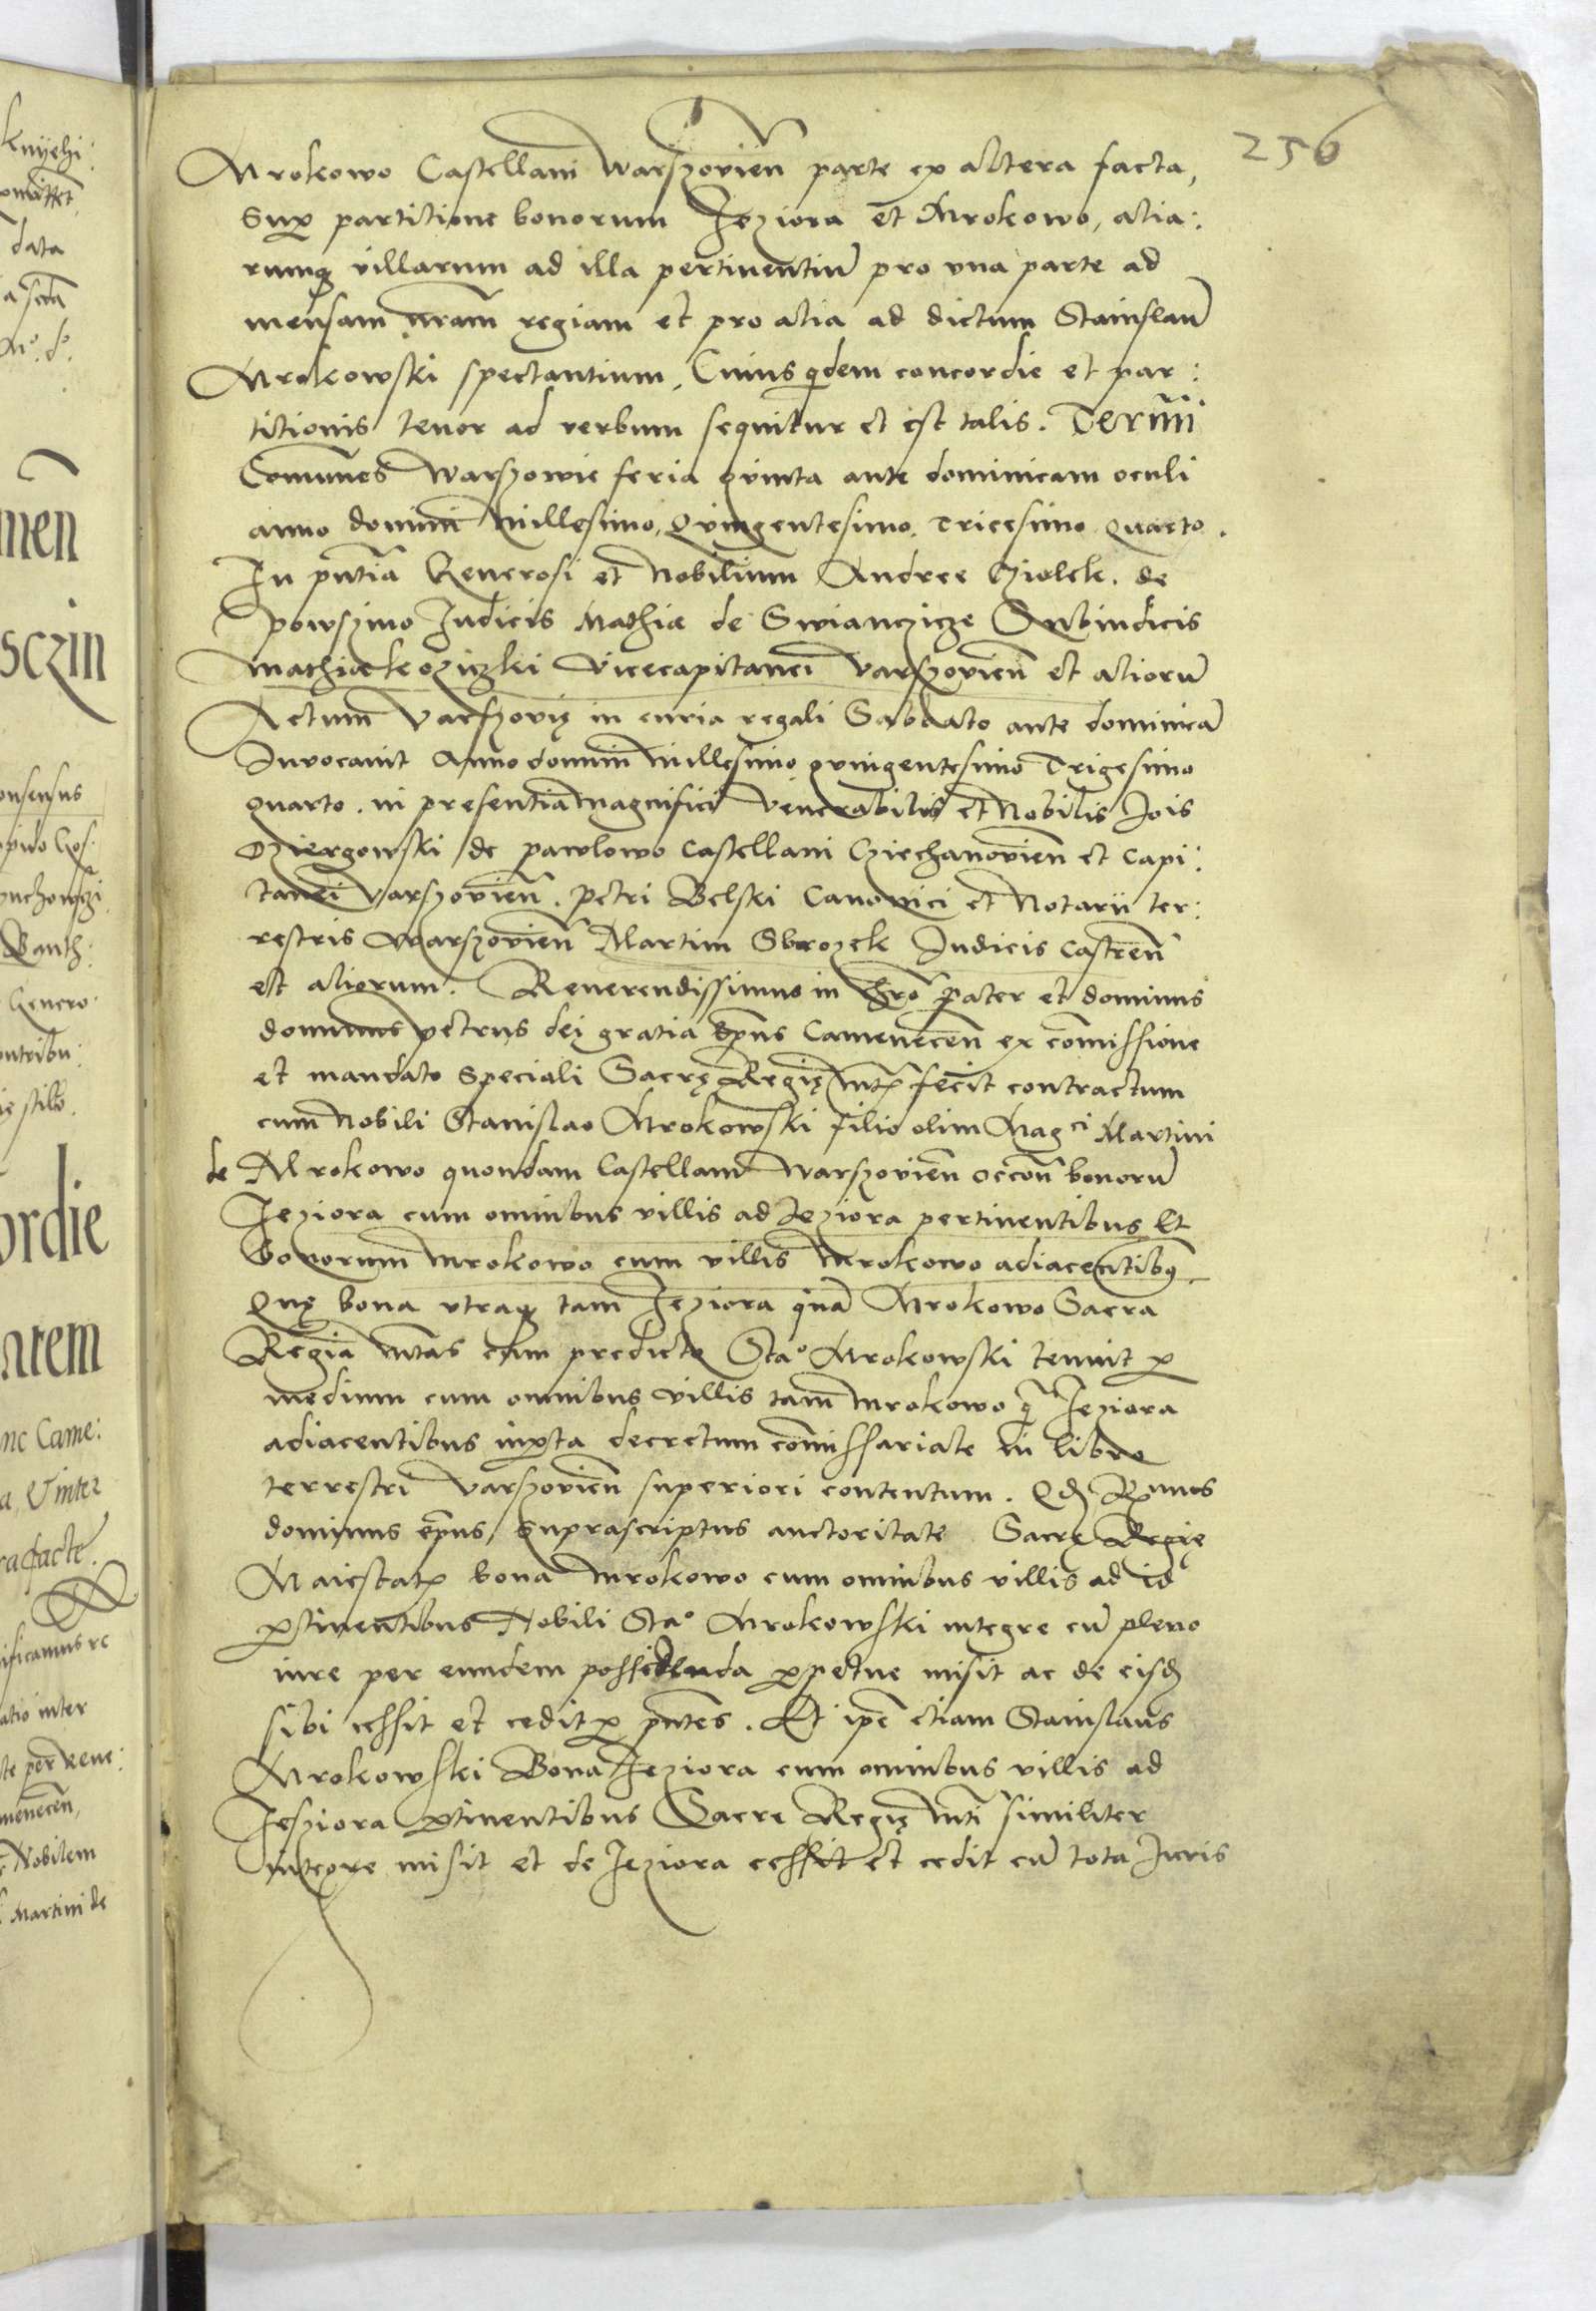 256
Mrokowo Castellani Warszovien̄ parte ex altera facta,
Sup partitione bonorum Jeziora et Mrokowo, alia:
rumq villarum ad illa pertinentiū pro vna parte ad
mensam nr̄am regiam et pro alia ad dictum Stanislaū
Mrokowski spectantium, Cuius qdem concordie et par:
titionis tenor ad verbum sequitur et est talis. Term̄i
Com̄unes Warszowie feria quinta ante dominicam oculi
anno domini millesimo, Quingentesimo. Tricesimo Quarto.
In pn̄tia Generosi et Nobilium Andree Cziolek. de
powszino Judicis Mathiæ de Swianczicze Subiudicis
Mathiæ Vicecapitanei Varszovien̄ et aliorū
Actum Varszovię in curia regali Sabbato ante dominicā
Invocavit Anno domini millesimo quingentesimo Trigesimo
quarto. in presentia magnifici Venerabilis et Nobilis Jois
Dziergowski de pawlowo Castellani Cziechanovien̄ et Capi:
tanei Varszovien̄. Petri Belski Canonici et Notarii ter:
restris Warszovien̄ Martini Sbrozek Judicis Castren̄
et aliorum. Reverendissimus in Chr̄o pater et dominus
dominus petrus dei gratia Ep̄us Camenecen̄ ex com̄issione
et mandato speciali Sacrę Regię mt̄is fecit contractum
cum Nobili Stanislao Mrokowski filio olim Magci Martini
de Mrokowo quondam Castellani Warszovien̄ occōn bonorū
Jeziora cum omnibus villis ad Jeziora pertinentibus Et
bonorum Mrokowo cum villis Mrokowo adiacentibq.
Quę bona vtraq tam Jeziora quā Mrokowo Sacra
Regia mt̄as cum predicto Stao Mrokowski tenuit p
medium cum omnibus villis tam Mrokowo q̄ Jeziora
adiacentibus iuxta decretum com̄issariale in libro
terrestri Varszovien̄ superiori contentum. Qd Rmus
dominus ep̄us suprascriptus auctoritate Sacrę Regię
Maiestatis bona Mrokowo cum omnibus villis ad id
ptinentibus Nobili Stao Mrokowski integre cū pleno
iure per eundem possidenda ppetue misit ac de eisd
sibi cessit et cedit p pn̄tes. Et ip̄e etiam Stanislaus
Mrokowski Bona Jeziora cum omnibus villis ad
Jesziora ptinentibus Sacre Regię mt̄i similiter
integre misit et de Jeziora cessit et cedit cū tota Juris